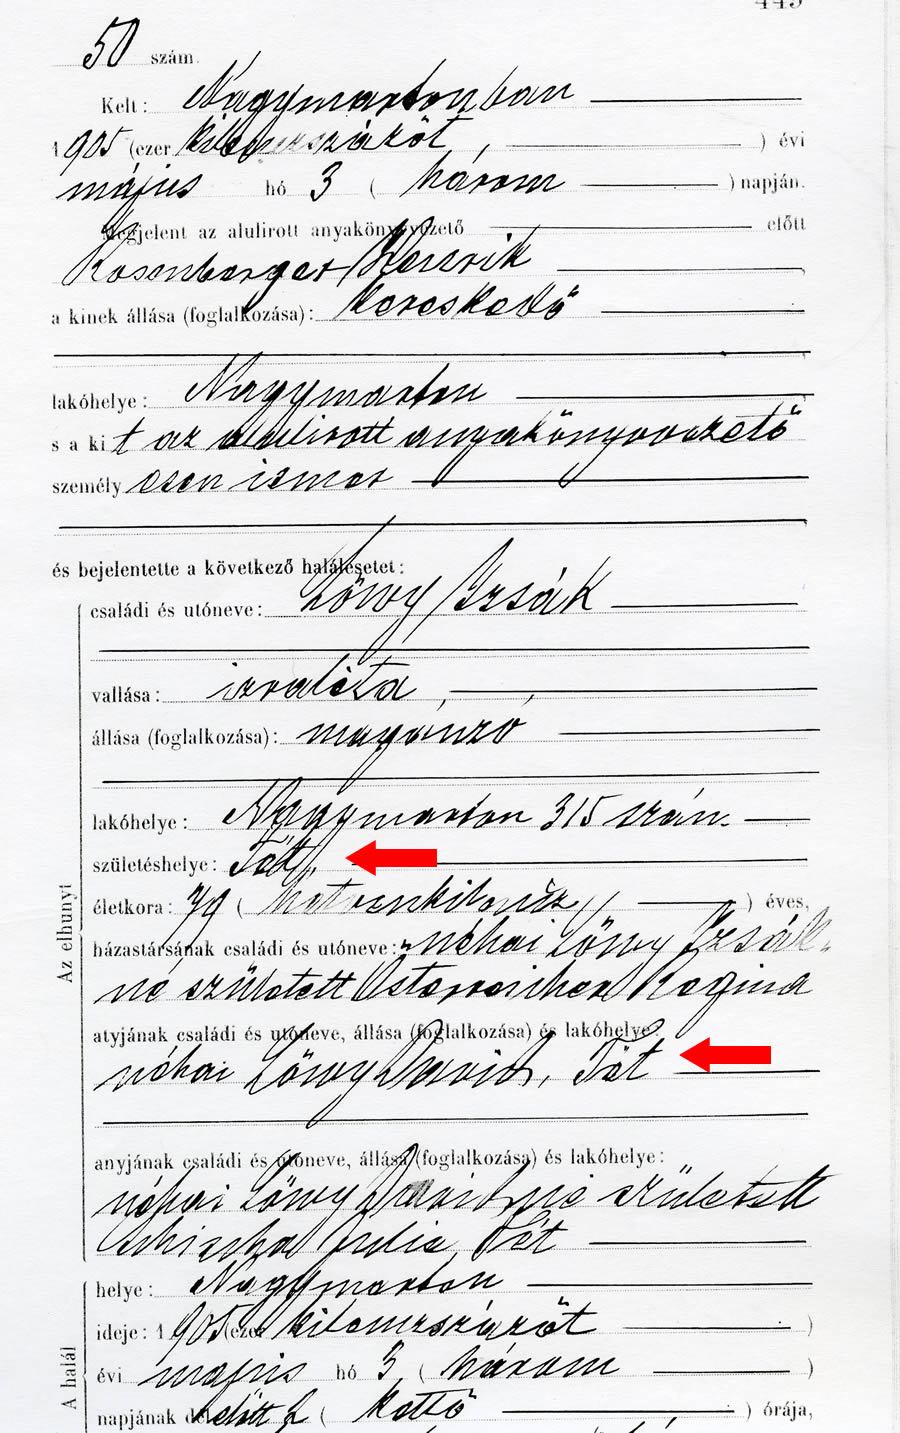 445
50 szám.
Kelt: Nagymartonban
1905 (ezer kilenczszázöt, ) évi
május hó 3 ( három ) napján.
Megjelent az alulirott anyakönyvvezető előtt
Rosenberger Henrik
a kinek állása (foglalkozása): kereskedő
lakóhelye: Nagymarton
s a kit az alulirott anyakönyvvezető
személyesen ismer
és bejelentette a következő halálesetet:
Az elhunyt
családi és utóneve: Löwy Izsák
vallása: izraelita,
állása (foglalkozása): magánzó
lakóhelye: Nagymarton 315 szám.
születéshelye: Tét,
életkora: 79 ( hetvenkilencz ) éves,
házastársának családi és utóneve: néhai Löwy Izsák-
né született Österreicher Regina
atyjának családi és utóneve, állása (foglalkozása) és lakóhelye:
néhai Löwy Dávid, Tét
anyjának családi és utóneve, állása (foglalkozása) és lakóhelye:
néhai Löwy Dávidné született
Julia, Tét
A halál
helye: Nagymarton
ideje: 1905 (ezer kilenczszázöt )
évi május hó 3 ( három )
napjának délelőtt 2 ( kettő ) órája,